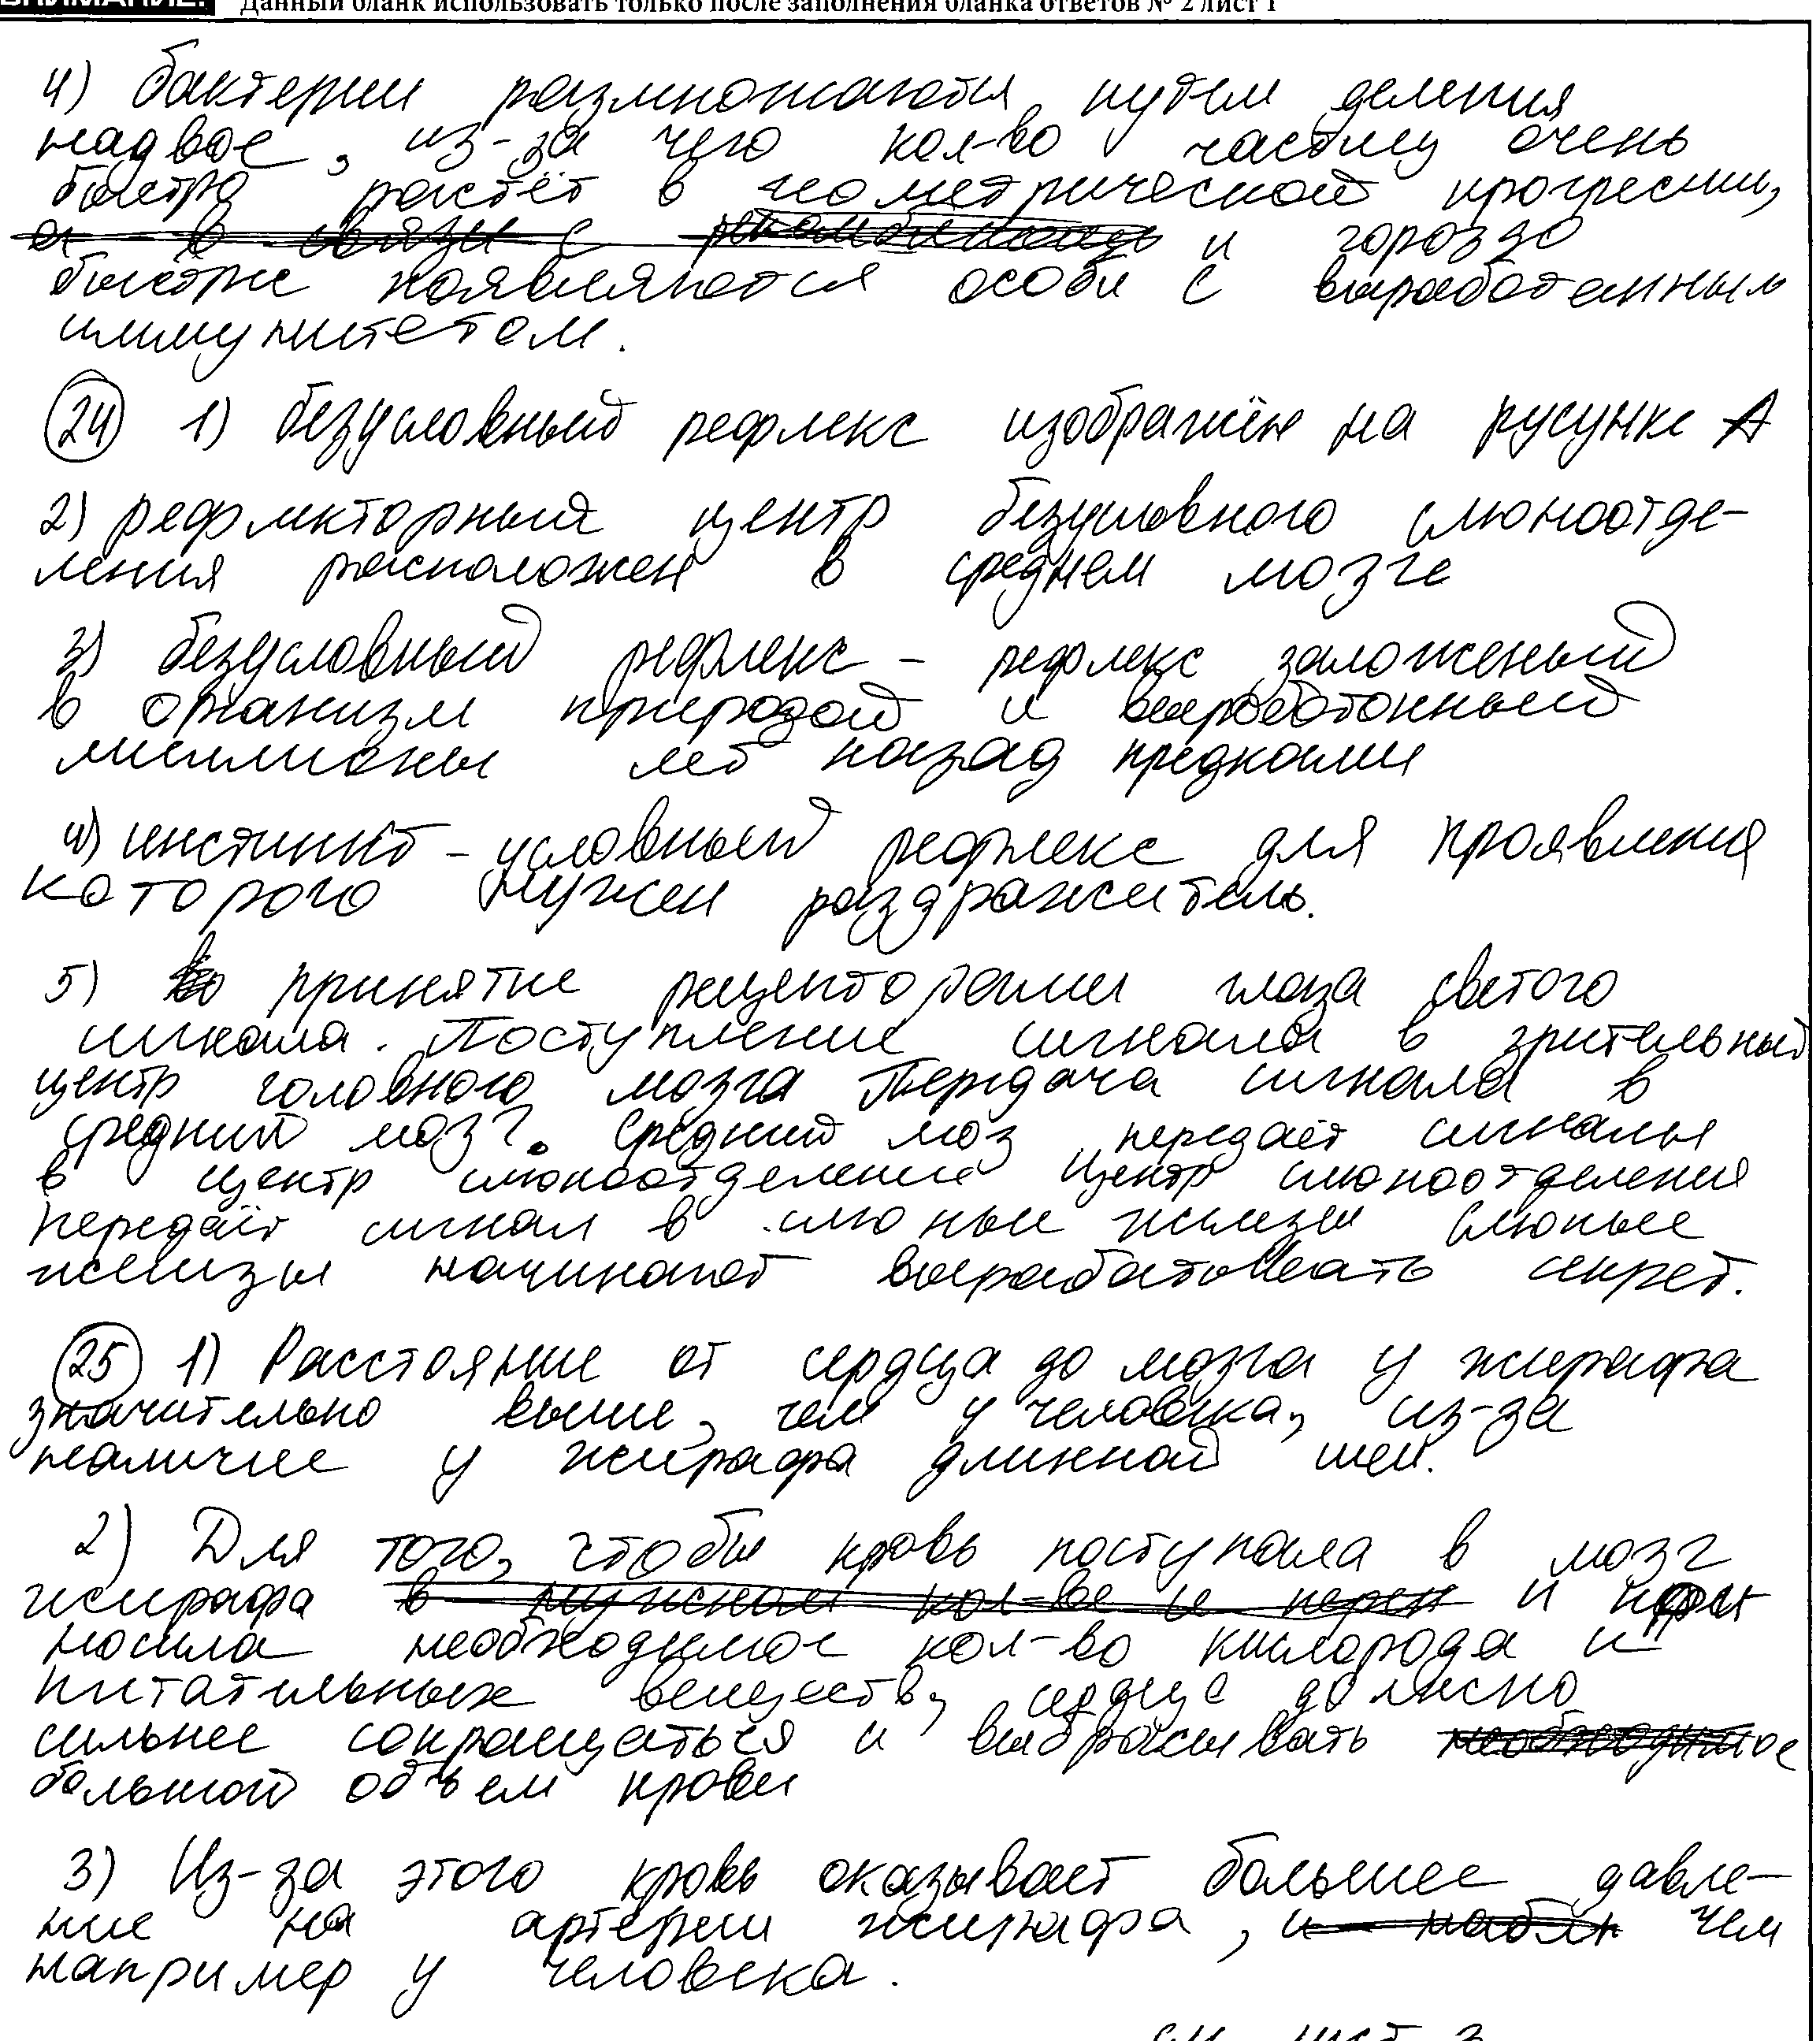 ВНИМАНИЕ! Данный бланк использовать только после заполнения бланка ответов № 2 лист 1
4) бактерии размножаются путём деления
надвое, из-за чего кол-во частиц очень
быстро растёт в геометрической прогрессии,
а в связи с и гороздо
быстрее появляются особи с выработанным
иммунитетом.
24 1) безусловный рефлекс изображён на русунке А
2) рефлекторный центр безусловного слюноотде-
ления расположен в среднем мозге
3) безусловный рефлекс - рефлекс заложеный
в организм природой и выработонный
миллионы лет назад предками
4) инстинкт - условный рефлекс для проявления
которого нужен раздражитель.
5) принятие рецепторами глаза светого
сигнала. Поступление сигнала в зрительный
центр головного мозга Передача сигнала в
средний мозг. Средний моз передаёт сигналы
в центр слюноотделения Центр слюноотделения
передаёт сигнал в слюные железы Слюные
железы начинают вырабатовать секрет.
25 1) Расстояние от сердца до мозга у жирафа
значительно выше, чем у человека, из-за
наличие у жирафа длинной шеи.
2) Для того, чтобы кровь поступала в мозг
жирафа в нужном кол-ве и перен и
носила необходимое кол-во кислорода и
питательных веществ, сердце должно
сильнее сокращаться и выбрасывать необходимое
большой объем крови
3) Из-за этого кровь оказывает большее давле-
ние на артерии жирафа, и чем
например у человека.
см. лист 3